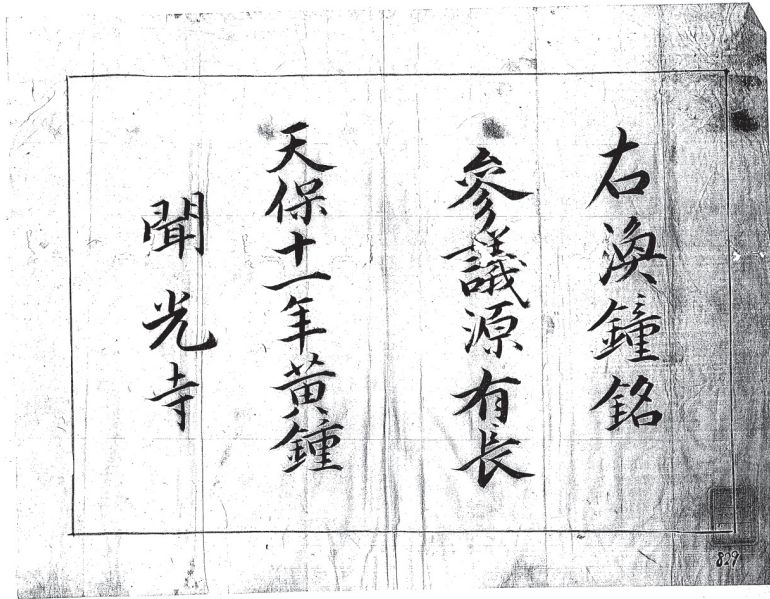 右渙鐘銘
參議源有長
天保十一年黃鍾
聞光寺
829